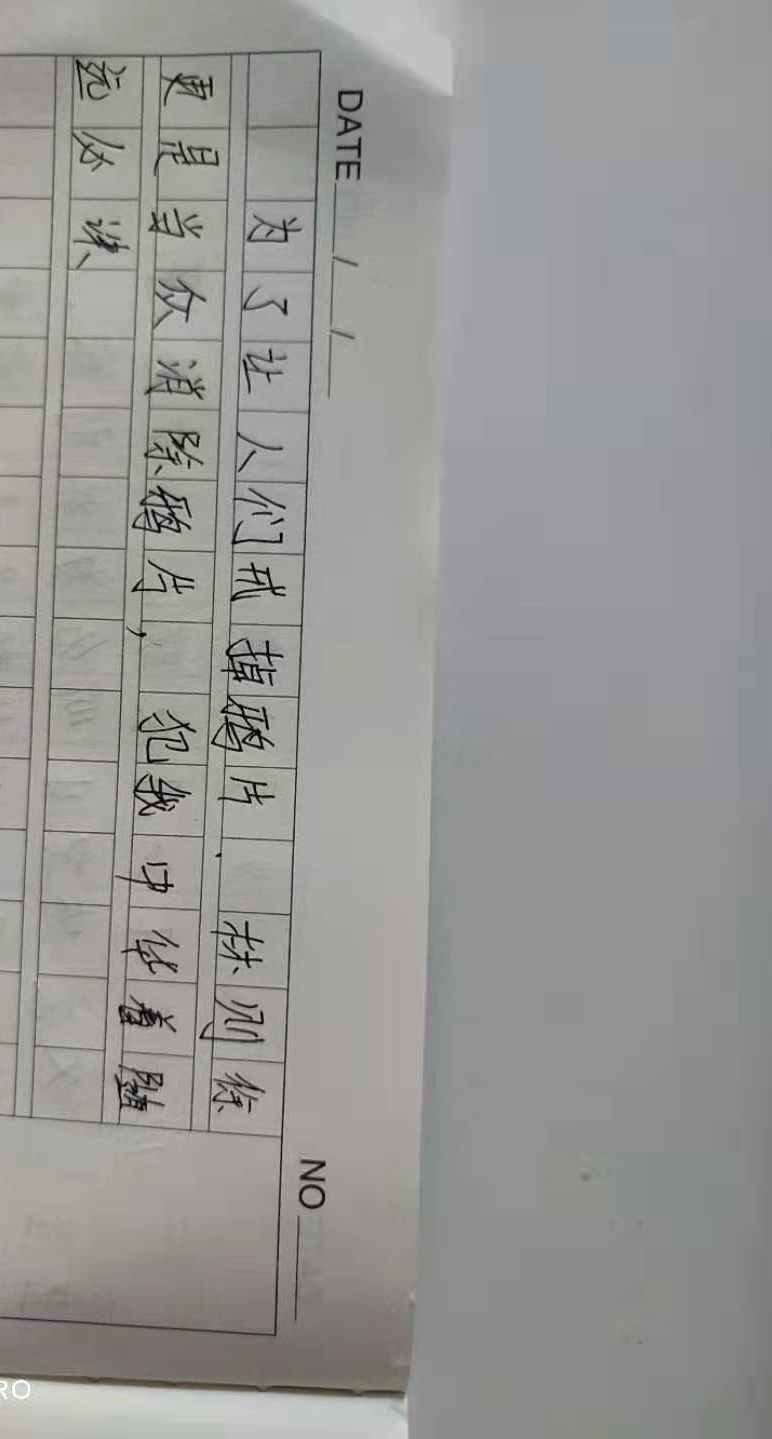 DATE / / NO
为了让人们戒掉鸦片.林则徐
更是当众消除鸦片,犯我中华着虽
远必诛
RO